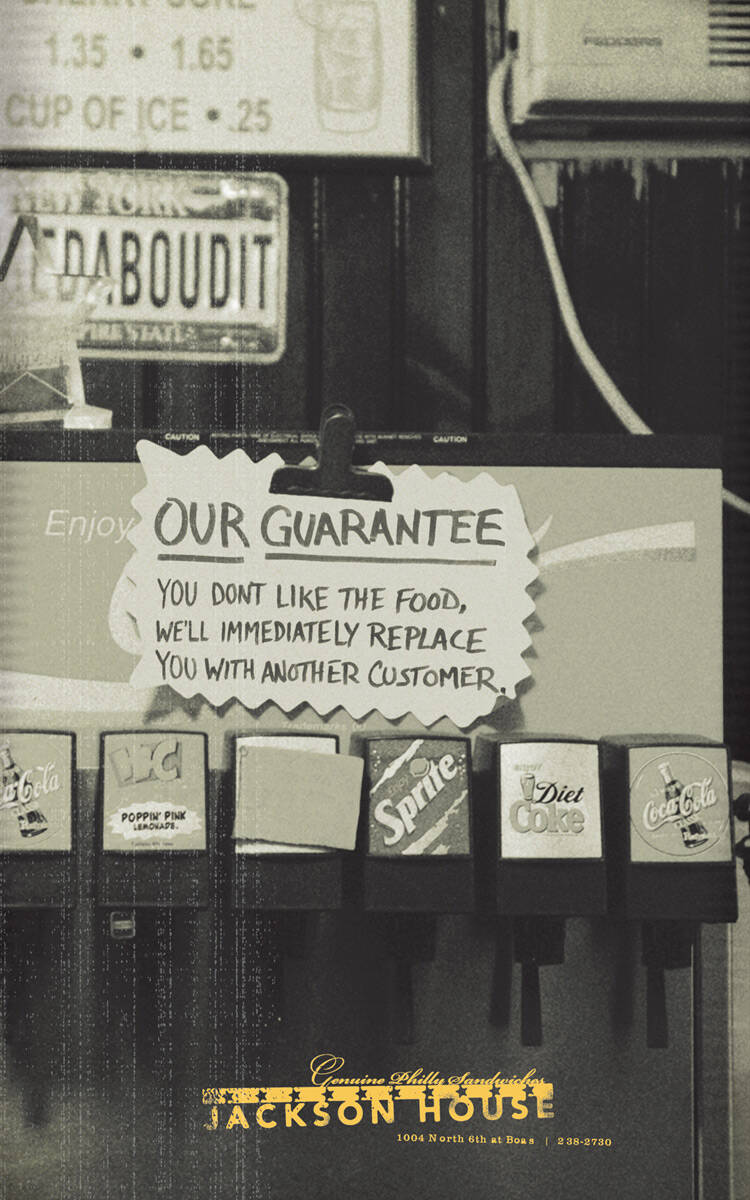 CHERRY COKE
1.35 • 1.65
CUP OF ICE • .25
FEDDERS
NEW YORK
EDABOUDIT
PIRE STATE
CAUTION
CAUTION
Enjoy
OUR GUARANTEE
YOU DONT LIKE THE FOOD,
WE'LL IMMEDIATELY REPLACE
YOU WITH ANOTHER CUSTOMER.
Coca-Cola
HI-C
POPPIN' PINK
LEMONADE.
Sprite
ENJOY
Diet
Coke
Coca-Cola
Genuine Philly Sandwiches
JACKSON HOUSE
1004 North 6th at Boas | 238-2730